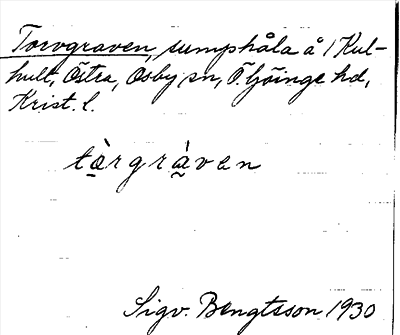 Torvgraven, sumphåla å 1 Kul-
hult, Östra, Osby sn, Ö. Göinge hd,
Krist. l.
tòrgràven
Sigv. Bengtsson 1930